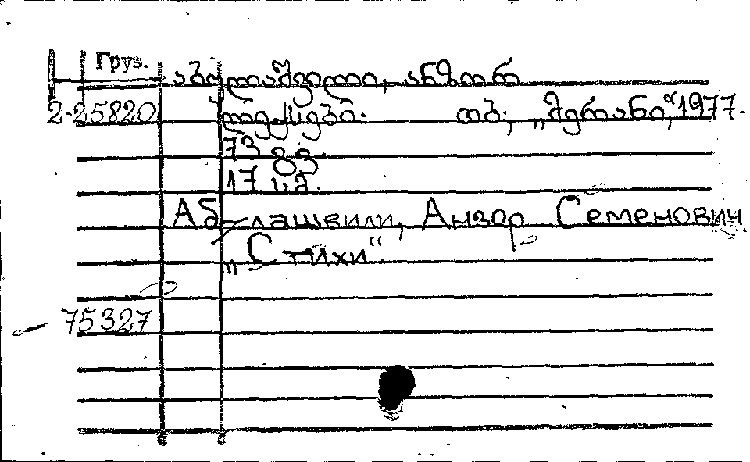 Груз.
აბულაშვილი, ანზორ
2-25820 ლექსები. თბ., „მერანი“, 1977.
73 გვ.
17 სმ.
Абулашвили, Анзор Семенович
„Стихи“.
75327